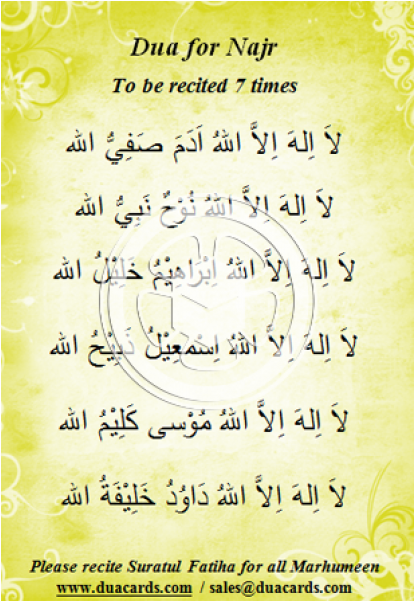 Dua for Najr
To be recited 7 times
لاَ اِلهَ اِلاَّ اللهُ اَدَمَ صَفِيُّ الله
لاَ اِلهَ اِلاَّ اللهُ نُوْحٌ نَبِيُّ الله
لاَ اِلهَ اِلاَّ اللهُ اِبْرَاهِيْمُ خَلِيْلُ الله
لاَ اِلهَ اِلاَّ اللهُ اِسْمعِيْلُ ذَبِيْحُ الله
لاَ اِلهَ اِلاَّ اللهُ مُوْسى كَلِيْمُ الله
لاَ اِلهَ اِلاَّ اللهُ دَاوُدُ خَلِيْفَةُ الله
Please recite Suratul Fatiha for all Marhumeen
www.duacards.com / sales@duacards.com